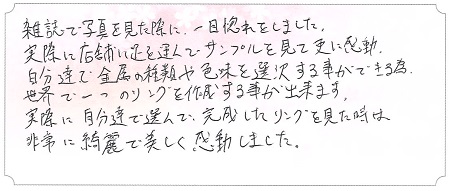 雑誌で写真を見た際に、一目惚れをしました。
実際に店舗に足を運んでサンプルを見て更に感動。
自分達で金属の種類や色味を選択する事ができる為、
世界で一つのリングを作成する事が出来ます。
実際に自分達で選んで、完成したリングを見た時は
非常に綺麗で美しく感動しました。